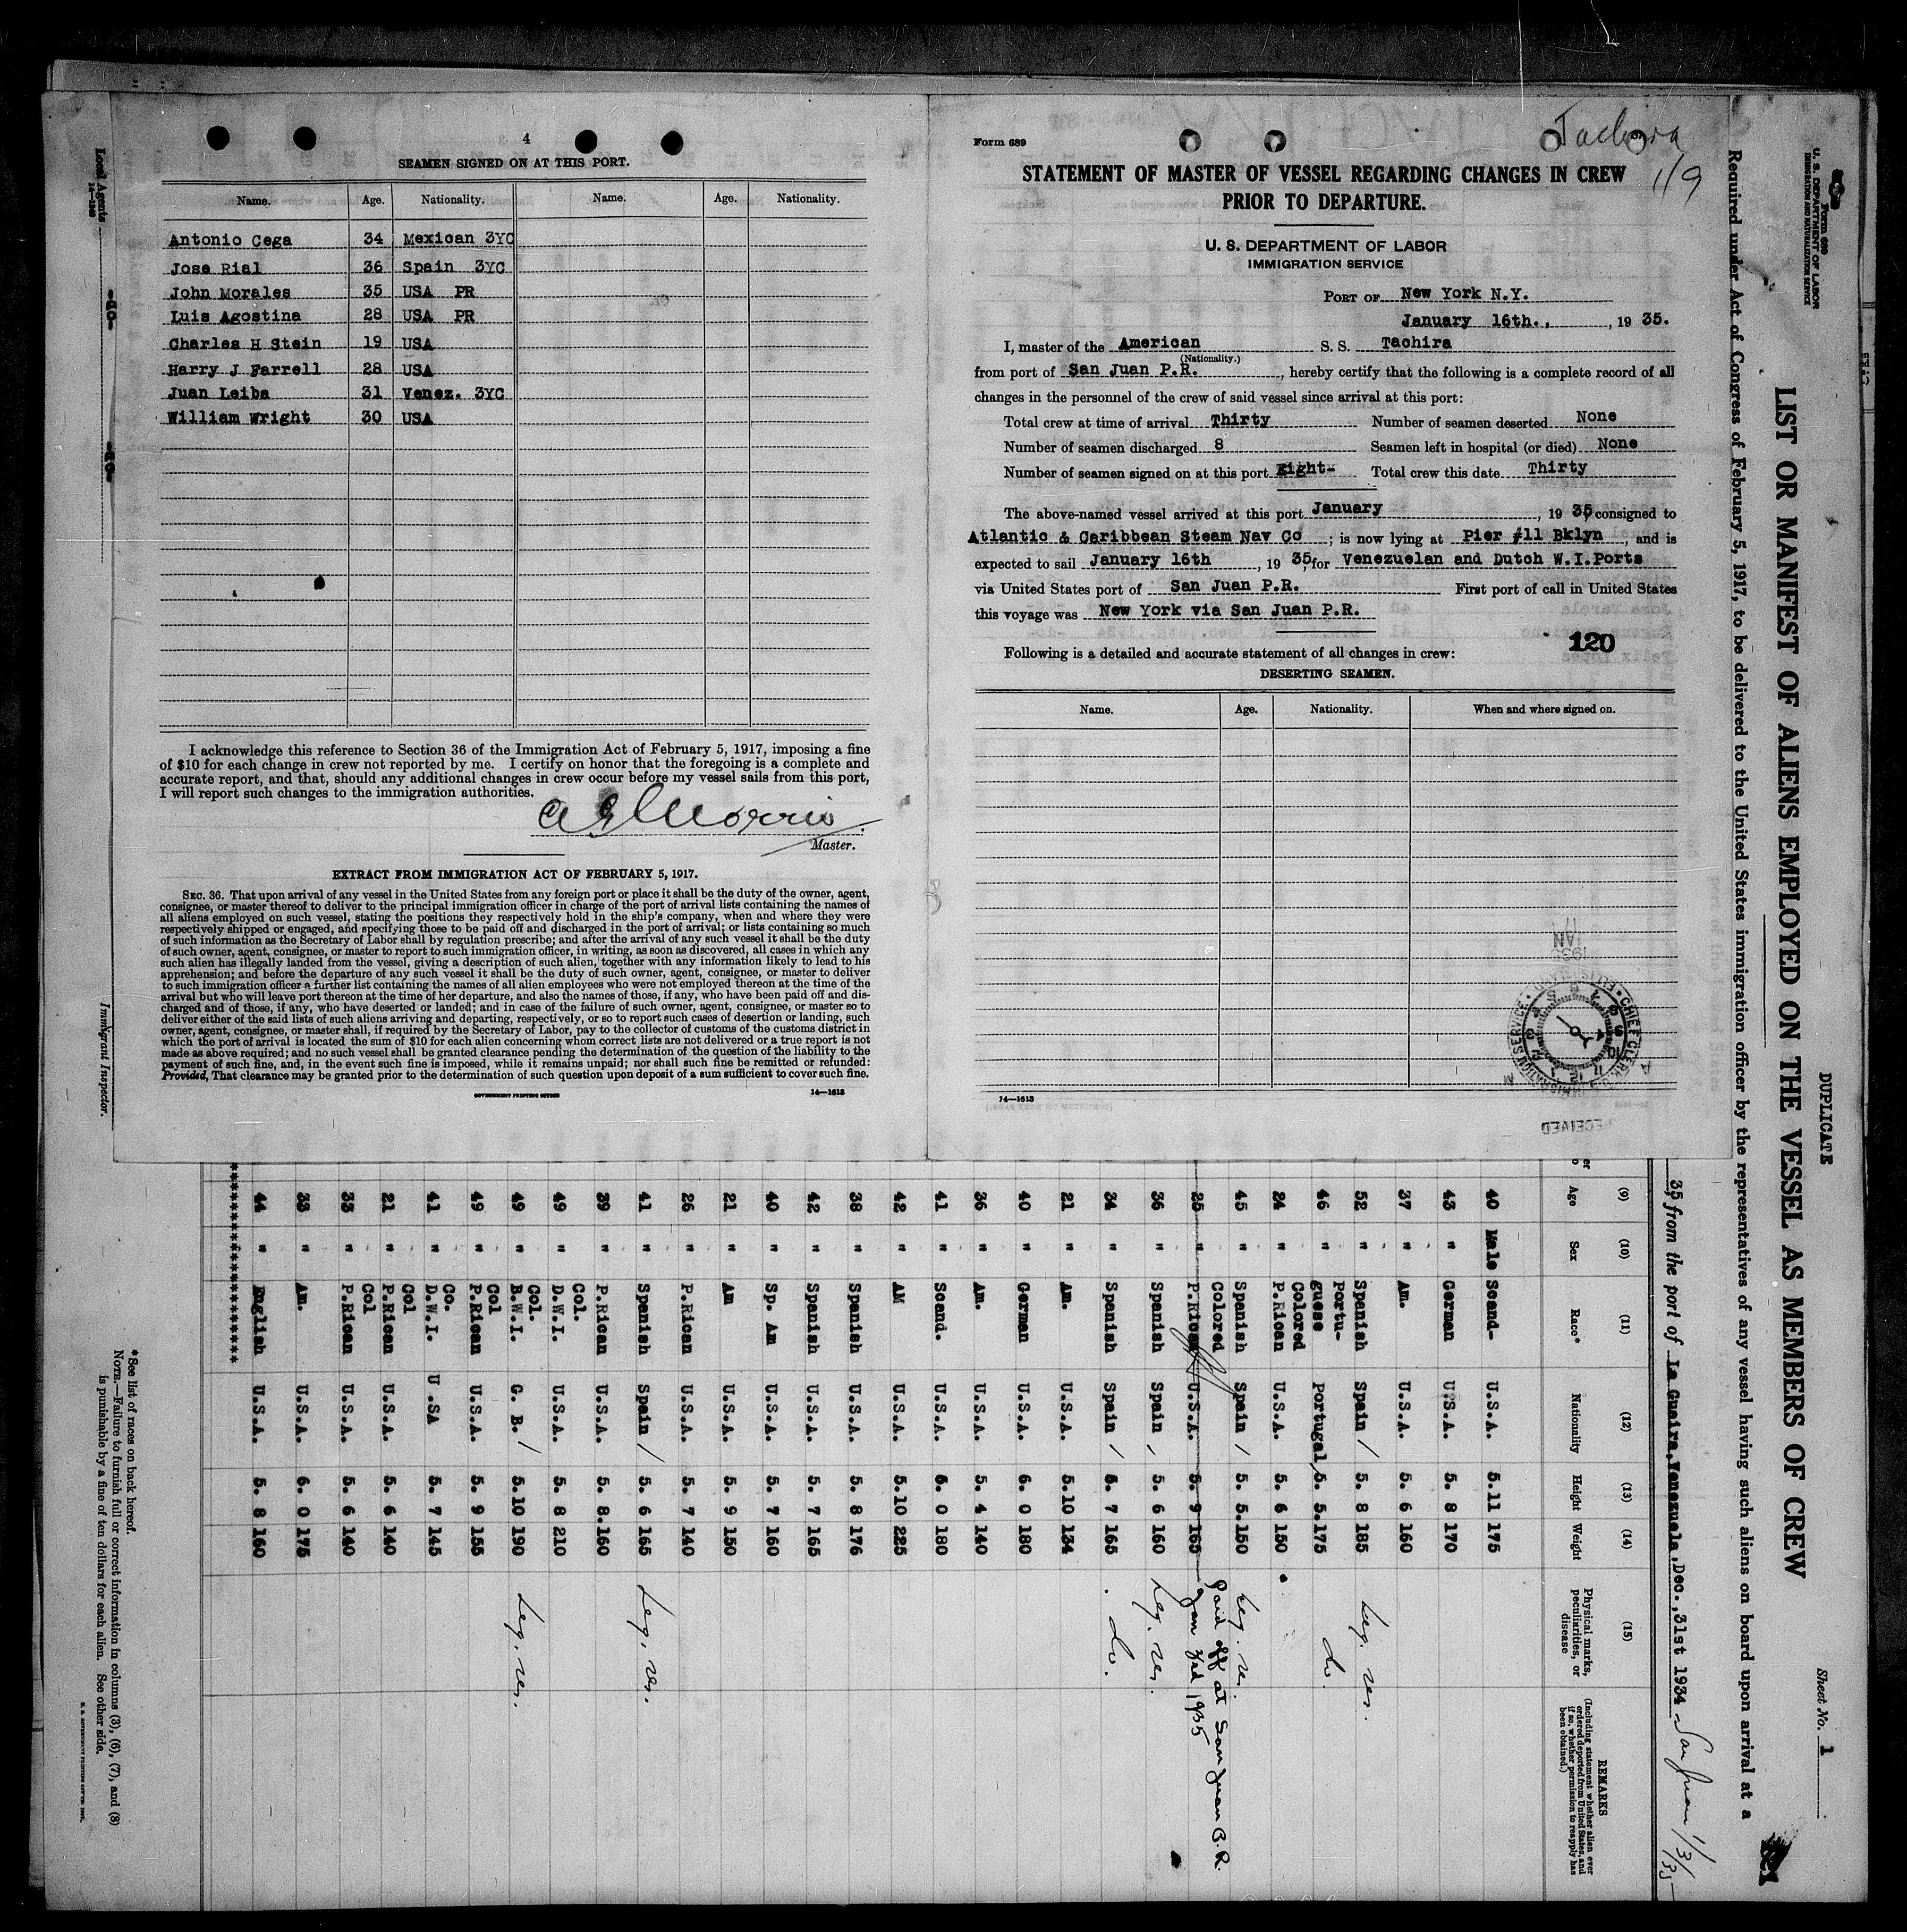 4
SEAMEN SIGNED ON AT THIS PORT.
Name. Age. Nationality. Name. Age. Nationality.
Antonio Cega 34 Mexican 3YC
Jose Rial 36 Spain 3YC
John Morales 35 USA PR
Luis Agostina 28 USA PR
Charles H Stein 19 USA
Harry J Farrell 28 USA
Juan Leiba 31 Venez. 3YC
William Wright 30 USA
I acknowledge this reference to Section 36 of the Immigration Act of February 5, 1917, imposing a fine
of $10 for each change in crew not reported by me. I certify on honor that the foregoing is a complete and
accurate report, and that, should any additional changes in crew occur before my vessel sails from this port,
I will report such changes to the immigration authorities.
Morris
Master.
EXTRACT FROM IMMIGRATION ACT OF FEBRUARY 5, 1917.
SEC. 36. That upon arrival of any vessel in the United States from any foreign port or place it shall be the duty of the owner, agent,
consignee, or master thereof to deliver to the principal immigration officer in charge of the port of arrival lists containing the names of
all aliens employed on such vessel, stating the positions they respectively hold in the ship's company, when and where they were
respectively shipped or engaged, and specifying those to be paid off and discharged in the port of arrival; or lists containing so much
of such information as the Secretary of Labor shall by regulation prescribe; and after the arrival of any such vessel it shall be the duty
of such owner, agent, consignee, or master to report to such immigration officer, in writing, as soon as discovered, all cases in which any
such alien has illegally landed from the vessel, giving a description of such alien, together with any information likely to lead to his
apprehension; and before the departure of any such vessel it shall be the duty of such owner, agent, consignee, or master to deliver
to such immigration officer a further list containing the names of all alien employees who were not employed thereon at the time of the
arrival but who will leave port thereon at the time of her departure, and also the names of those, if any, who have been paid off and dis-
charged and of those, if any, who have deserted or landed; and in case of the failure of such owner, agent, consignee, or master so to
deliver either of the said lists of such aliens arriving and departing, respectively, or so to report such cases of desertion or landing, such
owner, agent, consignee, or master shall, if required by the Secretary of Labor, pay to the collector of customs of the customs district in
which the port of arrival is located the sum of $10 for each alien concerning whom correct lists are not delivered or a true report is not
made as above required; and no such vessel shall be granted clearance pending the determination of the question of the liability to the
payment of such fine, and, in the event such fine is imposed, while it remains unpaid; nor shall such fine be remitted or refunded:
Provided, That clearance may be granted prior to the determination of such question upon deposit of a sum sufficient to cover such fine.
GOVERNMENT PRINTING OFFICE 14—1613
Form 689
Tachira
119
STATEMENT OF MASTER OF VESSEL REGARDING CHANGES IN CREW
PRIOR TO DEPARTURE.
U. S. DEPARTMENT OF LABOR
IMMIGRATION SERVICE
PORT OF New York N.Y.
January 16th., , 19 35.
I, master of the American S. S. Tachira
(Nationality.)
from port of San Juan P.R. , hereby certify that the following is a complete record of all
changes in the personnel of the crew of said vessel since arrival at this port:
Total crew at time of arrival Thirty Number of seamen deserted None
Number of seamen discharged 8 Seamen left in hospital (or died) None
Number of seamen signed on at this port Eight- Total crew this date Thirty
The above-named vessel arrived at this port January , 19 35, consigned to
Atlantic & Caribbean Steam Nav Co ; is now lying at Pier #11 Bklyn , and is
expected to sail January 16th , 19 35, for Venezuelan and Dutch W.I.Ports
via United States port of San Juan P.R. First port of call in United States
this voyage was New York via San Juan P.R.
120
Following is a detailed and accurate statement of all changes in crew:
DESERTING SEAMEN.
Name. Age. Nationality. When and where signed on.
14—1613
RECEIVED
Form 689
U. S. DEPARTMENT OF LABOR
IMMIGRATION AND NATURALIZATION SERVICE
DUPLICATE
Sheet No. 1
LIST OR MANIFEST OF ALIENS EMPLOYED ON THE VESSEL AS MEMBERS OF CREW
Required under Act of Congress of February 5, 1917, to be delivered to the United States immigration officer by the representatives of any vessel having such aliens on board upon arrival at a
35, from the port of La Guaira, Venezuela, Dec., 31st 1934 San Juan 1/3/35
(9) (10) (11) (12) (13) (14) (15)
Age Sex Race* Nationality Height Weight Physical marks, peculiarities, or disease REMARKS
(Including statement whether alien ever ordered deported from United States, and if so, whether permission to reapply has been obtained.)
40 Male Scand- U.S.A. 5.11 175
43 " German U.S.A. 5. 8 170
37 " Am. U.S.A. 5. 6 160
52 " Spanish Spain / 5. 8 185 Leg. res.
46 " Portu-guese Portugal/ 5. 5.175 do.
24 " Colored P.Rican U.S.A. 5. 6 150
45 " Spanish Spain / 5. 5.150 Leg. res.
25 " Colored P.Rican U.S.A. 5. 9 165 Paid off at San Juan P.R. Jan 3rd 1935
36 " Spanish Spain / 5. 6 160 Leg. res.
34 " Spanish Spain / 5. 7 165 do.
21 " Am. U.S.A. 5.10 134
40 " German U.S.A. 6. 0 180
36 " Am. U.S.A. 5. 4 140
41 " Scand. U.S.A. 6. 0 180
42 " AM U.S.A. 5.10 225
38 " Spanish U.S.A. 5. 8 176
42 " Spanish U.S.A. 5. 7 165
40 " Sp. Am U.S.A. 5. 7 160
21 " Am U.S.A. 5. 9 150
26 " P.Rican U.S.A. 5. 7 140
41 " Spanish Spain / 5. 6 165 Leg. res.
39 " P.Rican U.S.A. 5. 8.160
49 " Col. D.W.I. U.S.A. 5. 8 210
49 " Col. B.W.I. G. B. / 5.10 190 Leg. res.
49 " Col P.Rican U.S.A. 5. 9 155
41 " Co. D.W.I. U .SA 5. 7 145
21 " Col P.Rican U.S.A. 5. 6 140
33 " Col P.Rican U.S.A. 5. 6 140
33 " Am. U.S.A. 6. 0 175
44 " English U.S.A. 5. 8 160
*See list of races on back hereof.
NOTE.—Failure to furnish full or correct information in columns (3), (6), (7), and (8)
is punishable by a fine of ten dollars for each alien. See other side.
Local Agents
14—1240
-10-
-10-
Immigrant Inspector.